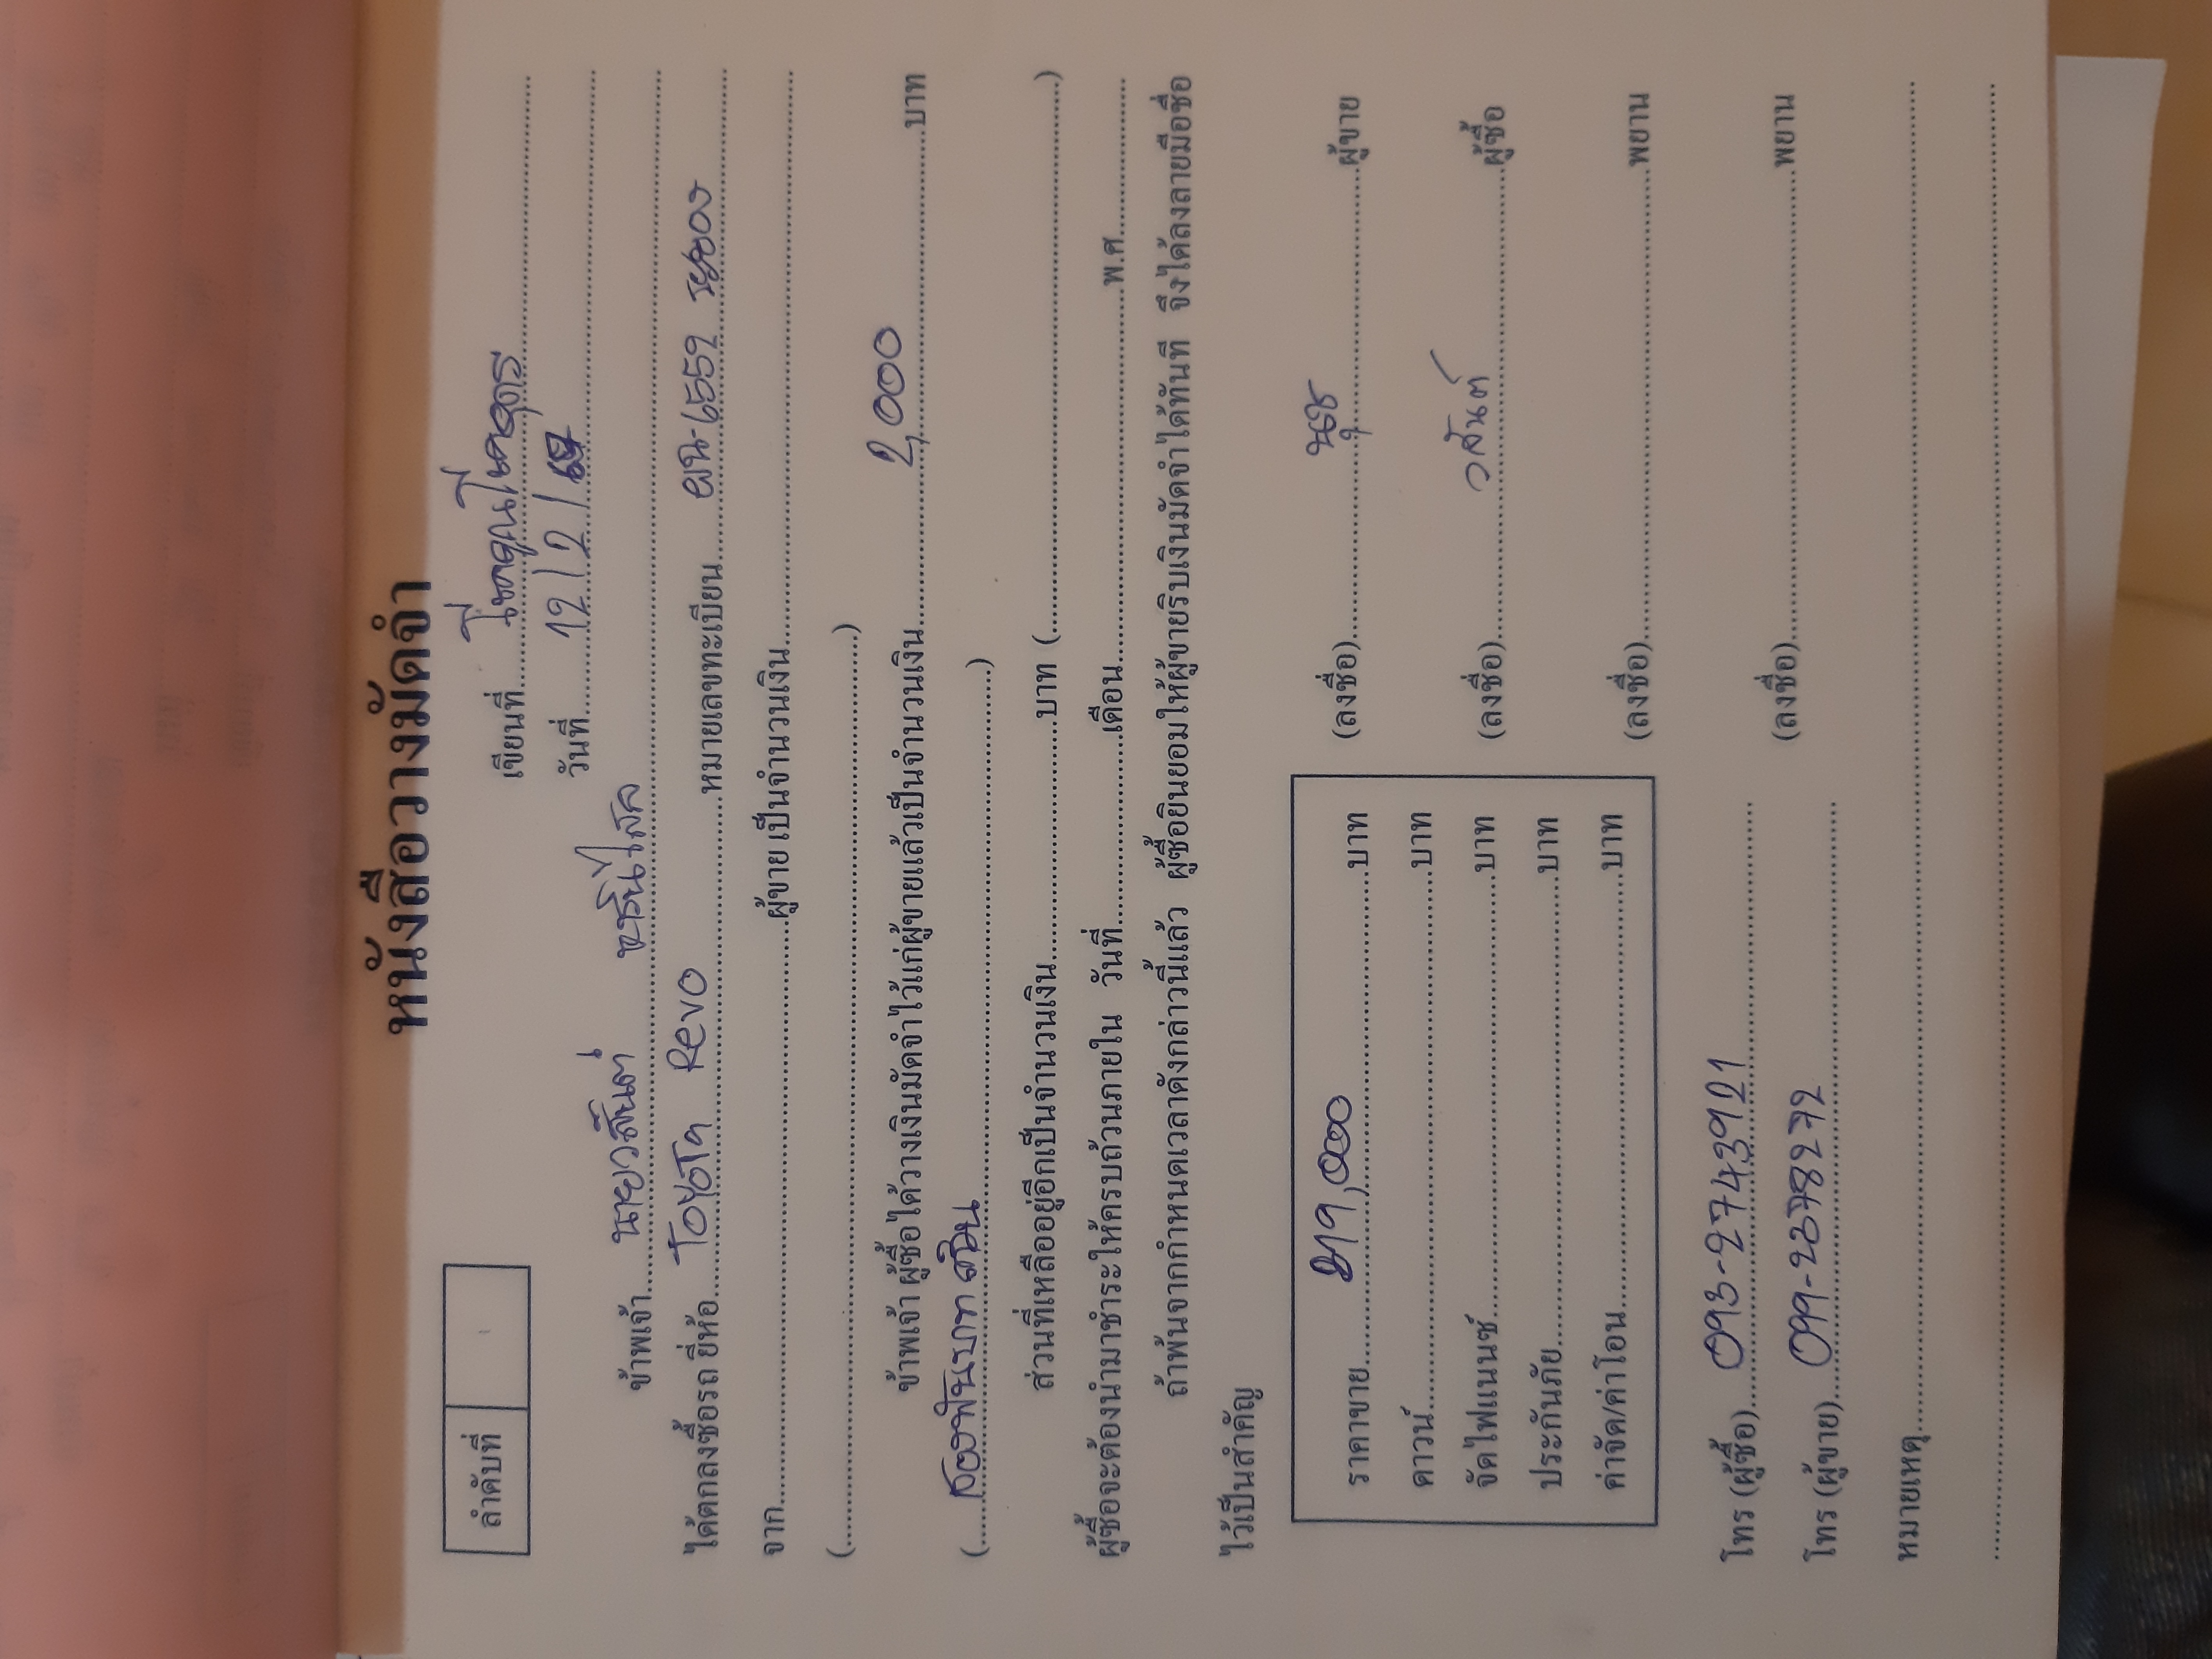 หนังสือวางมัดจำ
ลำดับที่
เขียนที่
วันที่ 12/2/
ข้าพเจ้า นายวสันต์
ได้ตกลงซื้อรถ ยี่ห้อ Toyota Revo หมายเลขทะเบียน ผน-6559 ระยอง
จาก ผู้ขาย เป็นจำนวนเงิน
( )
ข้าพเจ้า ผู้ซื้อได้วางเงินมัดจำไว้แก่ผู้ขายแล้วเป็นจำนวนเงิน 2,000 บาท
(สองพันบาทถ้วน)
ส่วนที่เหลืออยู่อีกเป็นจำนวนเงิน บาท ( )
ผู้ซื้อจะต้องนำมาชำระให้ครบถ้วนภายใน วันที่ เดือน พ.ศ.
ถ้าพ้นจากกำหนดเวลาดังกล่าวนี้แล้ว ผู้ซื้อยินยอมให้ผู้ขายริบเงินมัดจำได้ทันที จึงได้ลงลายมือชื่อ
ไว้เป็นสำคัญ
ราคาขาย บาท
ดาวน์ บาท
จัดไฟแนนซ์ บาท
ประกันภัย บาท
ค่าจัด/ค่าโอน บาท
(ลงชื่อ) นุช ผู้ขาย
(ลงชื่อ) วสันต์ ผู้ซื้อ
(ลงชื่อ) พยาน
(ลงชื่อ) พยาน
โทร (ผู้ซื้อ) 093-2743921
โทร (ผู้ขาย) 099-2378272
หมายเหตุ